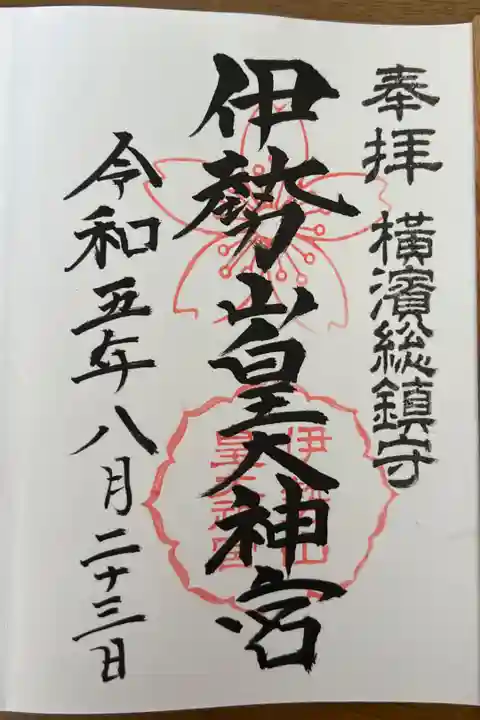 奉拝 横濱総鎮守
伊勢山皇大神宮
伊勢山
皇大神宮
令和五年八月二十三日